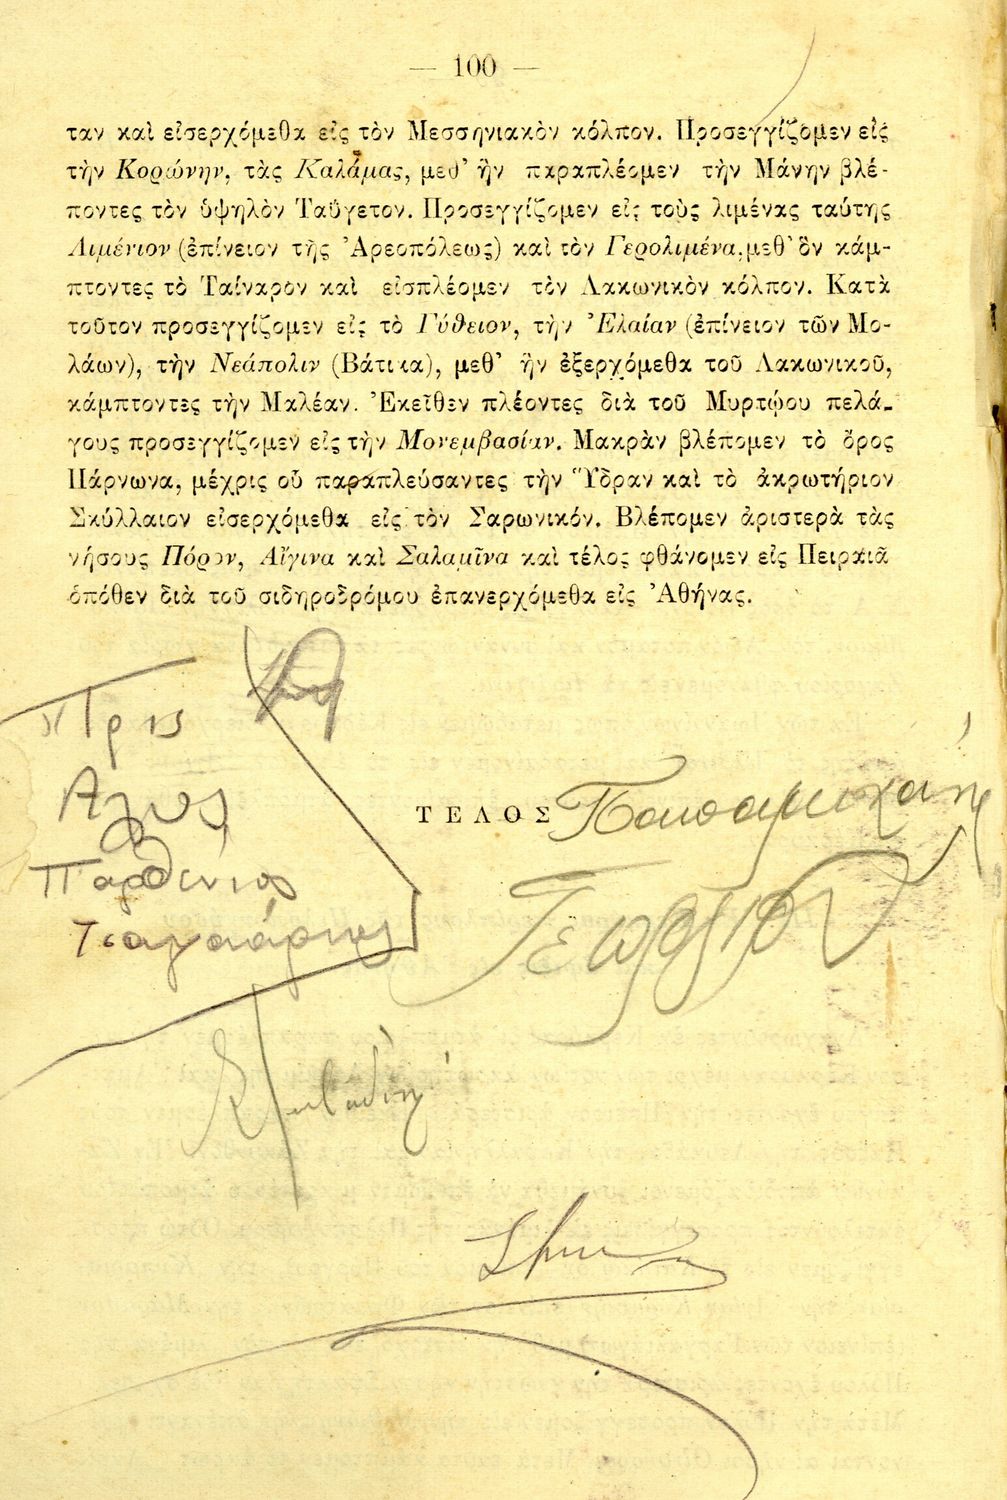 — 100 —
ταν καὶ εἰσερχόμεθα εἰς τὸν Μεσσηνιακὸν κόλπον. Προσεγγίζομεν εἰς
τὴν Κορώνην, τὰς Καλάμας, μεθ’ ἣν παραπλέομεν τὴν Μάνην βλέ-
ποντες τὸν ὑψηλὸν Ταΰγετον. Προσεγγίζομεν εἰς τοὺς λιμένας ταύτης
Λιμένιον (ἐπίνειον τῆς Ἀρεοπόλεως) καὶ τὸν Γερολιμένα, μεθ’ ὃν κάμ-
πτοντες τὸ Ταίναρον καὶ εἰσπλέομεν τὸν Λακωνικὸν κόλπον. Κατὰ
τοῦτον προσεγγίζομεν εἰς τὸ Γύθειον, τὴν Ἐλαίαν (ἐπίνειον τῶν Μο-
λάων), τὴν Νεάπολιν (Βάτικα), μεθ’ ἣν ἐξερχόμεθα τοῦ Λακωνικοῦ,
κάμπτοντες τὴν Μαλέαν. Ἐκεῖθεν πλέοντες διὰ τοῦ Μυρτῴου πελά-
γους προσεγγίζομεν εἰς τὴν Μονεμβασίαν. Μακρὰν βλέπομεν τὸ ὄρος
Πάρνωνα, μέχρις οὗ παραπλεύσαντες τὴν Ὕδραν καὶ τὸ ἀκρωτήριον
Σκύλλαιον εἰσερχόμεθα εἰς τὸν Σαρωνικόν. Βλέπομεν ἀριστερὰ τὰς
νήσους Πόρον, Αἴγινα καὶ Σαλαμῖνα καὶ τέλος φθάνομεν εἰς Πειραιᾶ
ὁπόθεν διὰ τοῦ σιδηροδρόμου ἐπανερχόμεθα εἰς Ἀθήνας.
ΤΕΛΟΣ
Παρθένιος
Γεωργιου